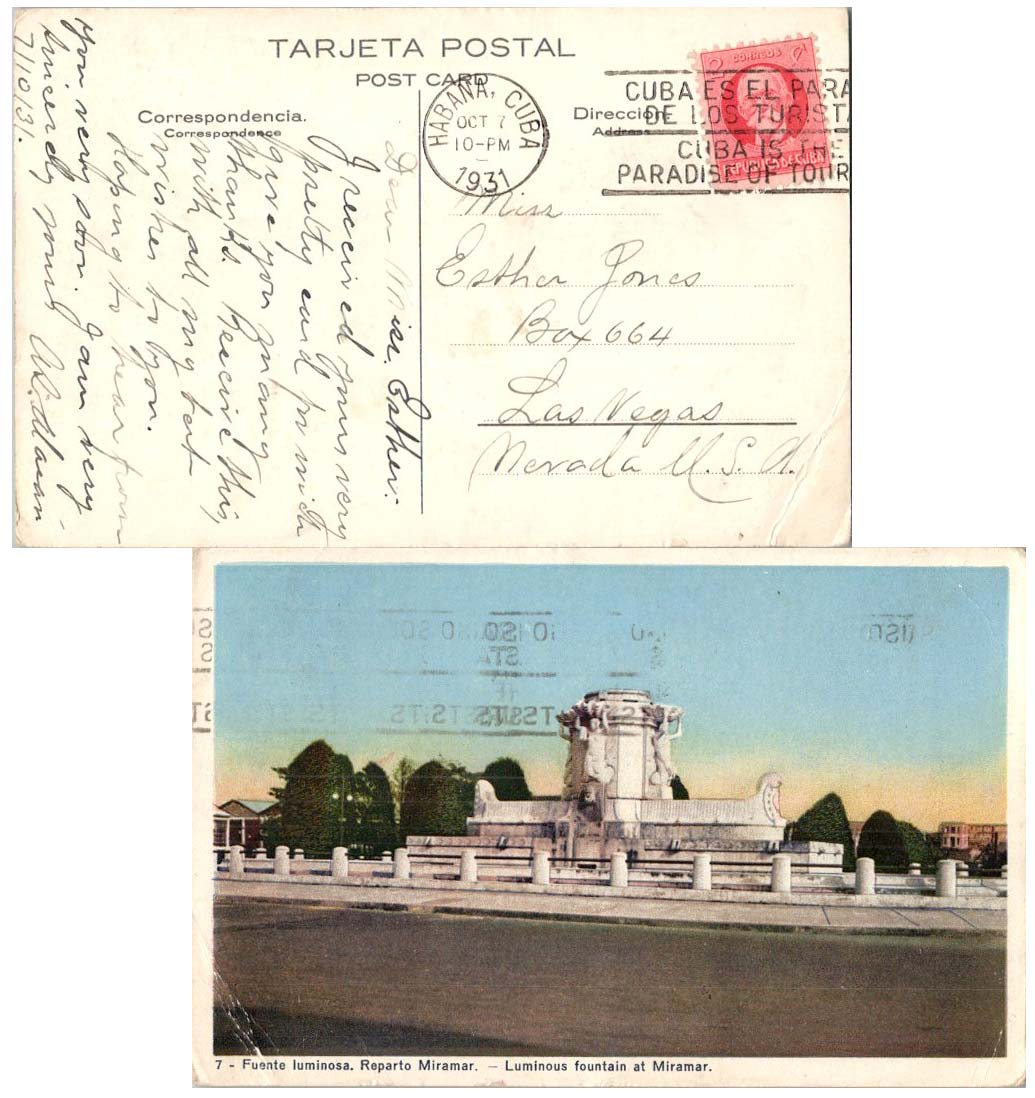 TARJETA POSTAL
POST CARD
Correspondencia.
Correspondence
Direccion
Address
HABANA, CUBA
OCT 7
10-PM
1931
CUBA ES EL PARA
DE LOS TURISTA
CUBA IS THE
PARADISE OF TOUR
2 CORREOS
REPUBLICA DE CUBA
Miss
Esther Jones
Box 664
Las Vegas
Nevada U.S.A.
Dear Miss. Esther:
I received yours very
pretty card for wich
give you many
thanks. Receive this,
with all my best
wishes to you.
Hoping to hear from
you very soon. I am very
sincerely yours
7/10/31.
7 - Fuente luminosa. Reparto Miramar. — Luminous fountain at Miramar.